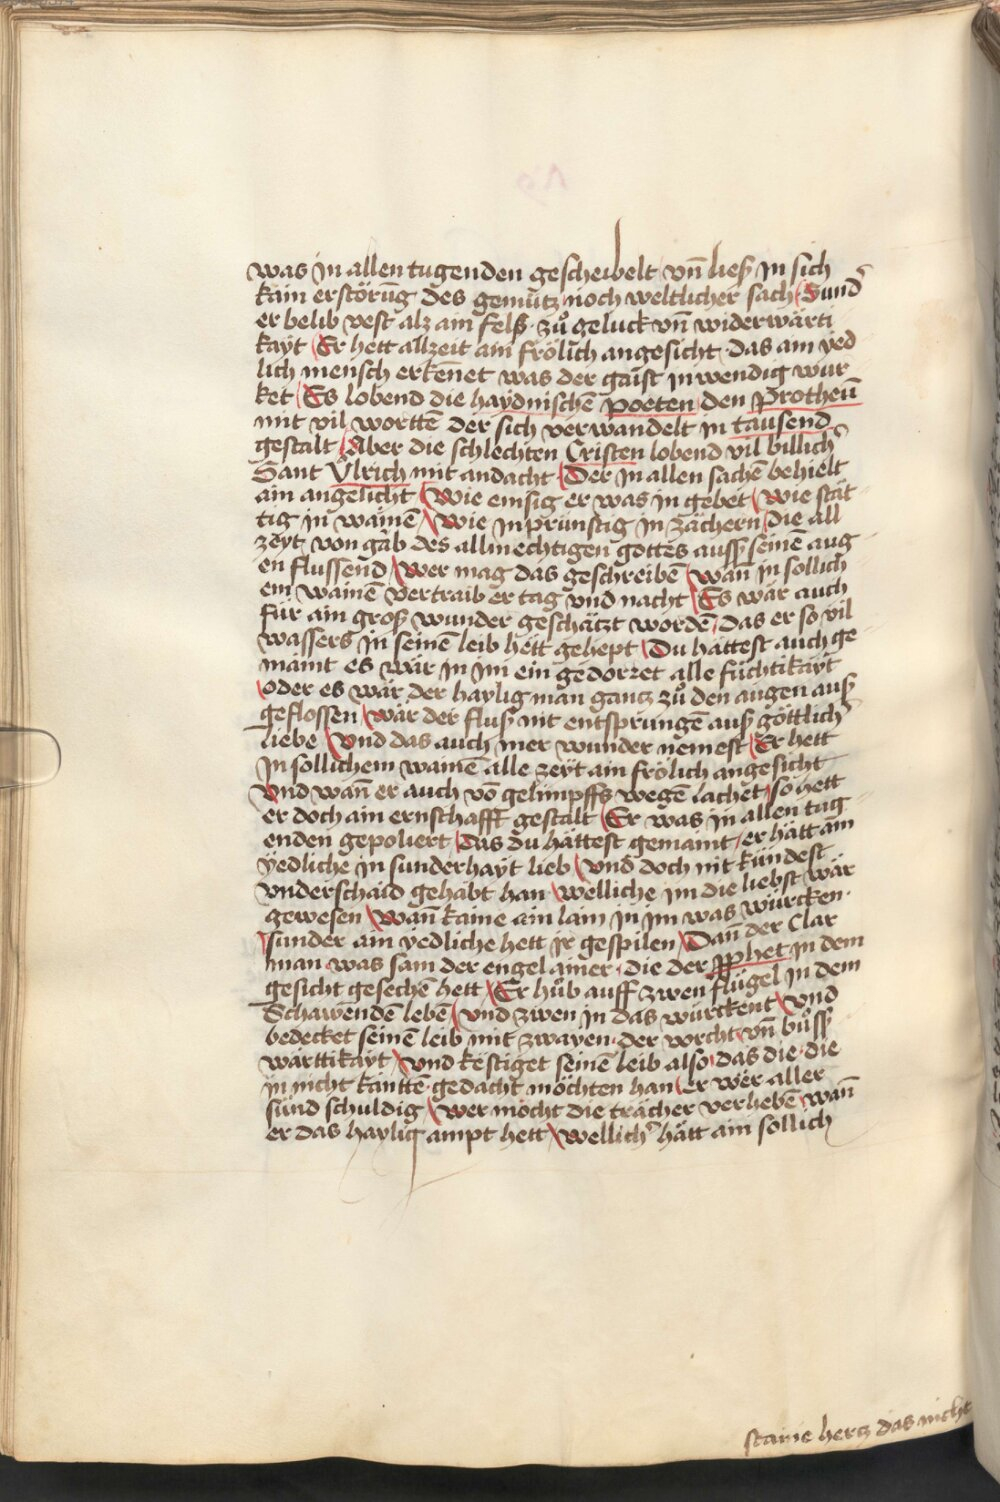 was in allen tugenden gescheibelt vn̄ liesz in sich
kain erstörūg des gemütz noch weltlicher sach Sund
er belib vest alz ain felsz· zů geluck vn̄ widerwärti
kayt Er hett allzeit ain frölich angesicht· das ain yed
lich mensch erken̄et was der gaist inwendig wür
ket Es lobend die haydnischē poeten den Protheū
mit vil worttē der sich verwandelt in tausend
gestalt Aber die schlechten Cristen lobend vil billich
Sant Vͦlrich mit andacht Der in allen sachē behielt
ain angesicht Wie einsig er was in gebet wie stät
tig in wainē Wie inprünstig in zächern die all
zeyt von gab des allmechtigen gottes aussz seinē aug
en flussend Wer mag das geschreibē wan̄ in sollich
em wainē vertraib er tag vnd nacht Es wär auch
für ain grosz wunder geschätzt wordē das er so vil
wassers in seinē leib hett gehept Du hättest auch ge
maint es wär in im ein gedorret alle füchtikayt
oder es wär der haylig man gantz zů den augen ausz
geflossen wär der flusz nit entsprungē ausz göttlich
liebe Vnd das auch mer wunder nemest Er hett
in sollichem wainē alle zeyt ain frölich angesicht
Vnd wan̄ er auch vō gelimpffs wegē lachet so hett
er doch ain ernschafft gestalt Er was in allen tag
enden gepoliert Das du hättest gemaint er hätt ain
yedliche in sunderhayt lieb vnd doch nit kündest
vnderschaid gehabt han welliche im die liebst wär
gewesen wan̄ kaine ain lam in im was würcken·
sunder ain yedliche hett ir gespilen Dan̄ der Clar
man was sam der engel ainer· die der p̱phet in dem
gesicht gesechē hett Er hůb auff zwen flügel in dem
Schawendē lebē vnd zwen in das würckent vnd
bedecket seinē leib mit zwayen· der vorcht vn̄ bůssz
wärttikayt vnd kestiget seinē leib also das die· die
in nicht kanttē gedacht möchten han er wer aller
sünd schuldig Wer möcht die trächer verhebē wan̄
er das haylig ampt hett Wellich hätt ain sollich
stainē hertz das nicht